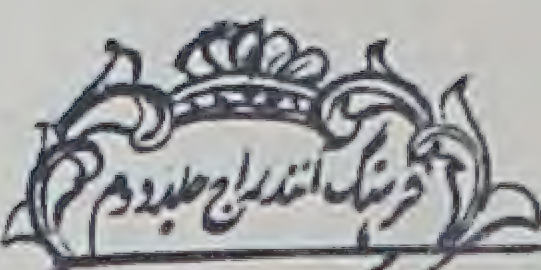 فرہنگ انندراج جلد دوم